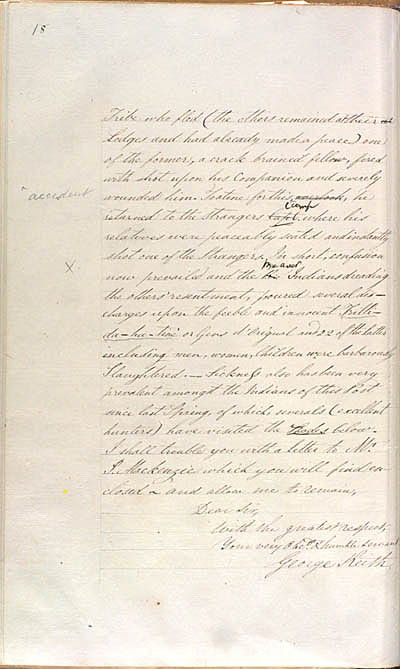 18
Tribe who fled (the others remained at their
Lodges and had already made a peace) one
of the former, a crack brained fellow, fired
with shot upon his Companion and severely
"accident
wounded him. To atone for this, he
Camp
returned to the Strangers where his
relatives were peaceably seated and instantly
X
shot one of the Strangers. In short, confusion
Beaver
now prevailed and the Indians dreading
the others' resentment, poured several dis-
charges upon the feeble and innocent
da-ha-tine or Gens d'Orignal and 22 of the latter
including men, women, children were barbarously
Slaughtered. — Sickness also has been very
prevalent amongst the Indians of this Post
since last Spring, of which several (excellent
hunters) have visited the Shades below.
I shall trouble you with a letter to Mr
Mackenzie which you will find en-
closed — and allow me to remain,
Dear Sir,
With the greatest respect,
Your very Obt. & humble servant
George Keith.